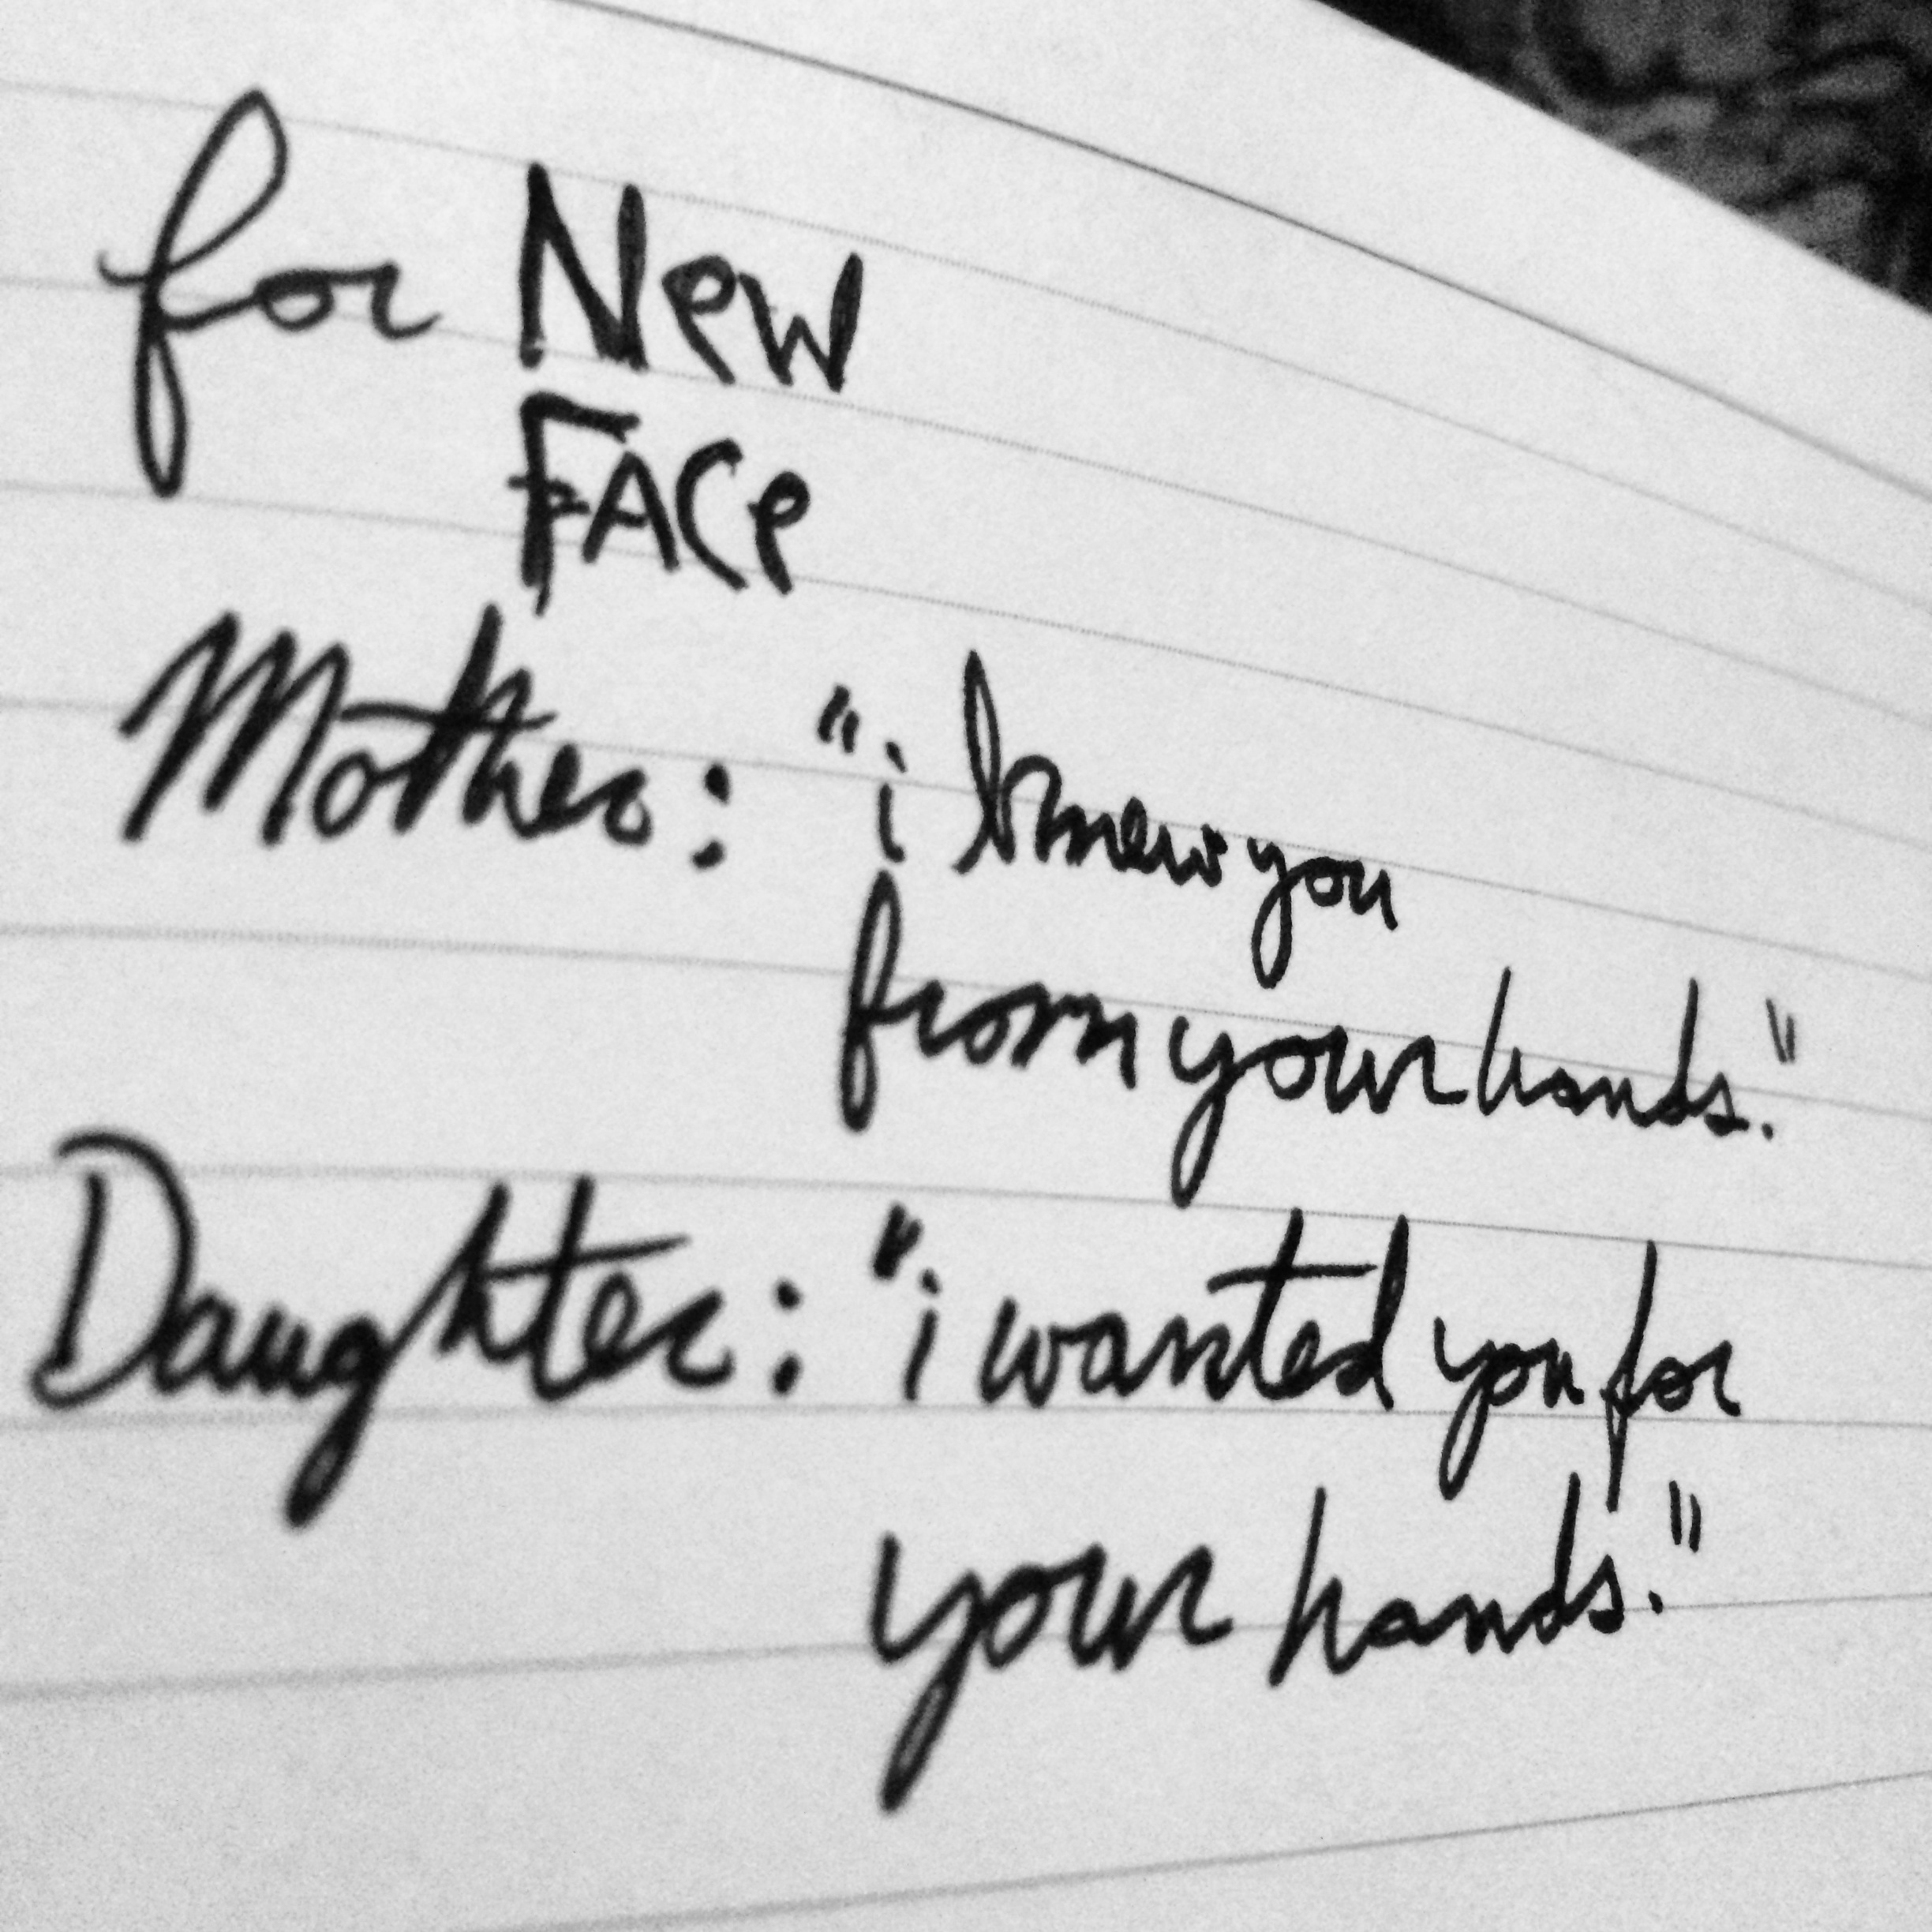 for New
Face
Mother: "i knew you
from your hands."
Daughter: "i wanted you for
your hands."